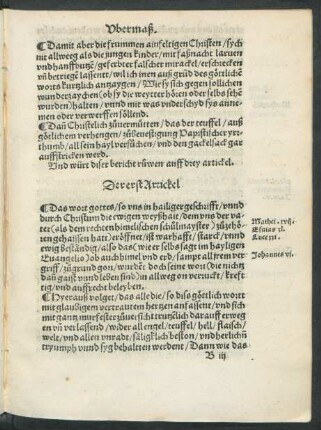 Vbermaß.
Damit aber die frummen ainfeltigen Christen / sych
nit allweg als die jungen kinder / mit faßnacht laruen
vnd hanfbutze / geferbter falscher mirackel / erschrecken
vñ betriegẽ lassent / wil ich inen auß grüd des göttlichẽ
worts kurtzlich antzaygen / Wie sy sich gegen sollichen
wunderzaychen (ob sy die weytter hören oder selbs sehẽ
wurden) halten / vnnd mit was vnderschyd sys anne=
men oder verwerffen söllend.
Dañ Christelich zůuermůtten / das der teuffel / auß
götlichem verhengen / zůbeuestigung Papistischer yr=
thumb / all sein hayl versůchen / vnd den gackelsack gar
auffstricken werd.
Vnd würt diser bericht růwen auff drey artickel.
Der erst Artickel
Das wort gottes / so vns in hailiger geschrifft / vnnd
durch Christum die ewigen weyßhait / dem vns der va=
ter (als dem rechten himelischen schůlmayster) zůzehö=
ren gehaissen hatt) eröffnet / ist warhafft / starck / vnnd
ewig bestãdig / also das (wie er selbs sagt im hayligen
Euangelio) ob auch himel vnd erd / sampt all jrem ver=
griff / zůgrund gon / wurdẽ doch seine won (die nichtz
dañ gaist vnd leben sind) in all weg on verruckt / kreff=
tig / vnd auffrecht beleyben.
Hyerauß volget / das alle die / so diso göttlich wort
mit glaubigem vertrautem hertzen anfassent / vnd sich
mit gantz murfester zůuersicht trutzlich darauff erweg
en vñ verlassend / wider all engel / teuffel / hell / flaisch /
welt / vnd allen vnradt / säligklich beston / vnd herlichñ
tryumph vnnd syg behalten werdent / Dann wie das
B iij
Mathei. xviij.
Esaias xl.
Luce xxi.
Johannes vi.